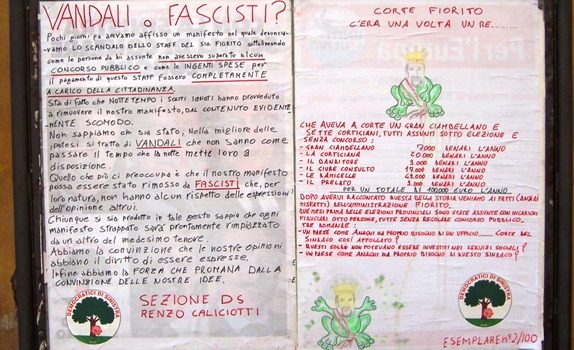 VANDALI o FASCISTI?
Pochi giorni fa avevamo affisso un manifesto nel quale denunciavamo
LO SCANDALO DELLO STAFF DEL SIG. FIORITO sottolineando
come le persone da lui assunte non avessero superato alcun
CONCORSO PUBBLICO e come le INGENTI SPESE per
il pagamento di questo STAFF fossero COMPLETAMENTE
A CARICO DELLA CITTADINANZA.
Sta di fatto che NOTTETEMPO i soliti ignoti hanno provveduto
a rimuovere il nostro manifesto, DAL CONTENUTO EVIDENTE-
MENTE SCOMODO.
Non sappiamo chi sia stato, Nella migliore delle
ipotesi si tratta di VANDALI che non sanno come
passare il tempo che la notte mette loro a
disposizione.
Quello che più ci preoccupa è che il nostro manifesto
possa essere stato rimosso da FASCISTI che, per
loro natura, non hanno alcun rispetto delle espressioni
dell'opinione altrui.
Chiunque si sia prodotto in tale gesto sappia che ogni
manifesto strappato sarà prontamente rimpiazzato
da un altro del medesimo tenore.
Abbiamo la convinzione che le nostre opinioni
abbiano il diritto di essere espresse.
Infine abbiamo la FORZA CHE PROMANA DALLA
CONVINZIONE DELLE NOSTRE IDEE.
SEZIONE DS
RENZO CALICIOTTI
DEMOCRATICI DI SINISTRA
CORTE FIORITO
C'ERA UNA VOLTA UN RE......
CHE AVEVA A CORTE UN GRAN CIAMBELLANO E
SETTE CORTIGIANI, TUTTI ASSUNTI SOTTO ELEZIONE E
SENZA CONCORSO:
- GRAN CIAMBELLANO 7000 DENARI L'ANNO
- LA CORTIGIANA 20.000 DENARI L'ANNO
- IL BANDITORE 3.000 DENARI L'ANNO
- IL CIURE CONSULTO DENARI L'ANNO
- LE ANCELLE 48.000 DENARI L'ANNO
- IL PRELATO 3.000 DENARI L'ANNO
PER UN TOTALE DI 100000 EURO L'ANNO
DOPO AVERVI RACCONTATO QUESTA STORIA VENIAMO AI FATTI
RISPETTO DELL'AMMINISTRAZIONE FIORITO,
DUE MESI PRIMA DELLE ELEZIONI PROVINCIALI SONO STATE ASSUNTE CON INCARICHI
FIDUCIARI, OTTO PERSONE, TUTTE SENZA REGOLARE CONCORSO PUBBLICO,
TRE DOMANDE:
- UN PAESE COME ANAGNI HA PROPRIO BISOGNO DI UN UFFICIO...... CORTE DEL
SINDACO COSÌ AFFOLLATO?
- QUESTI SOLDI NON POTEVANO ESSERE INVESTITI NEI SERVIZI SOCIALI?
- UN PAESE COME ANAGNI HA PROPRIO BISOGNO DI QUESTO SINDACO?
DEMOCRATICI DI SINISTRA
ESEMPLARE N° 2/100